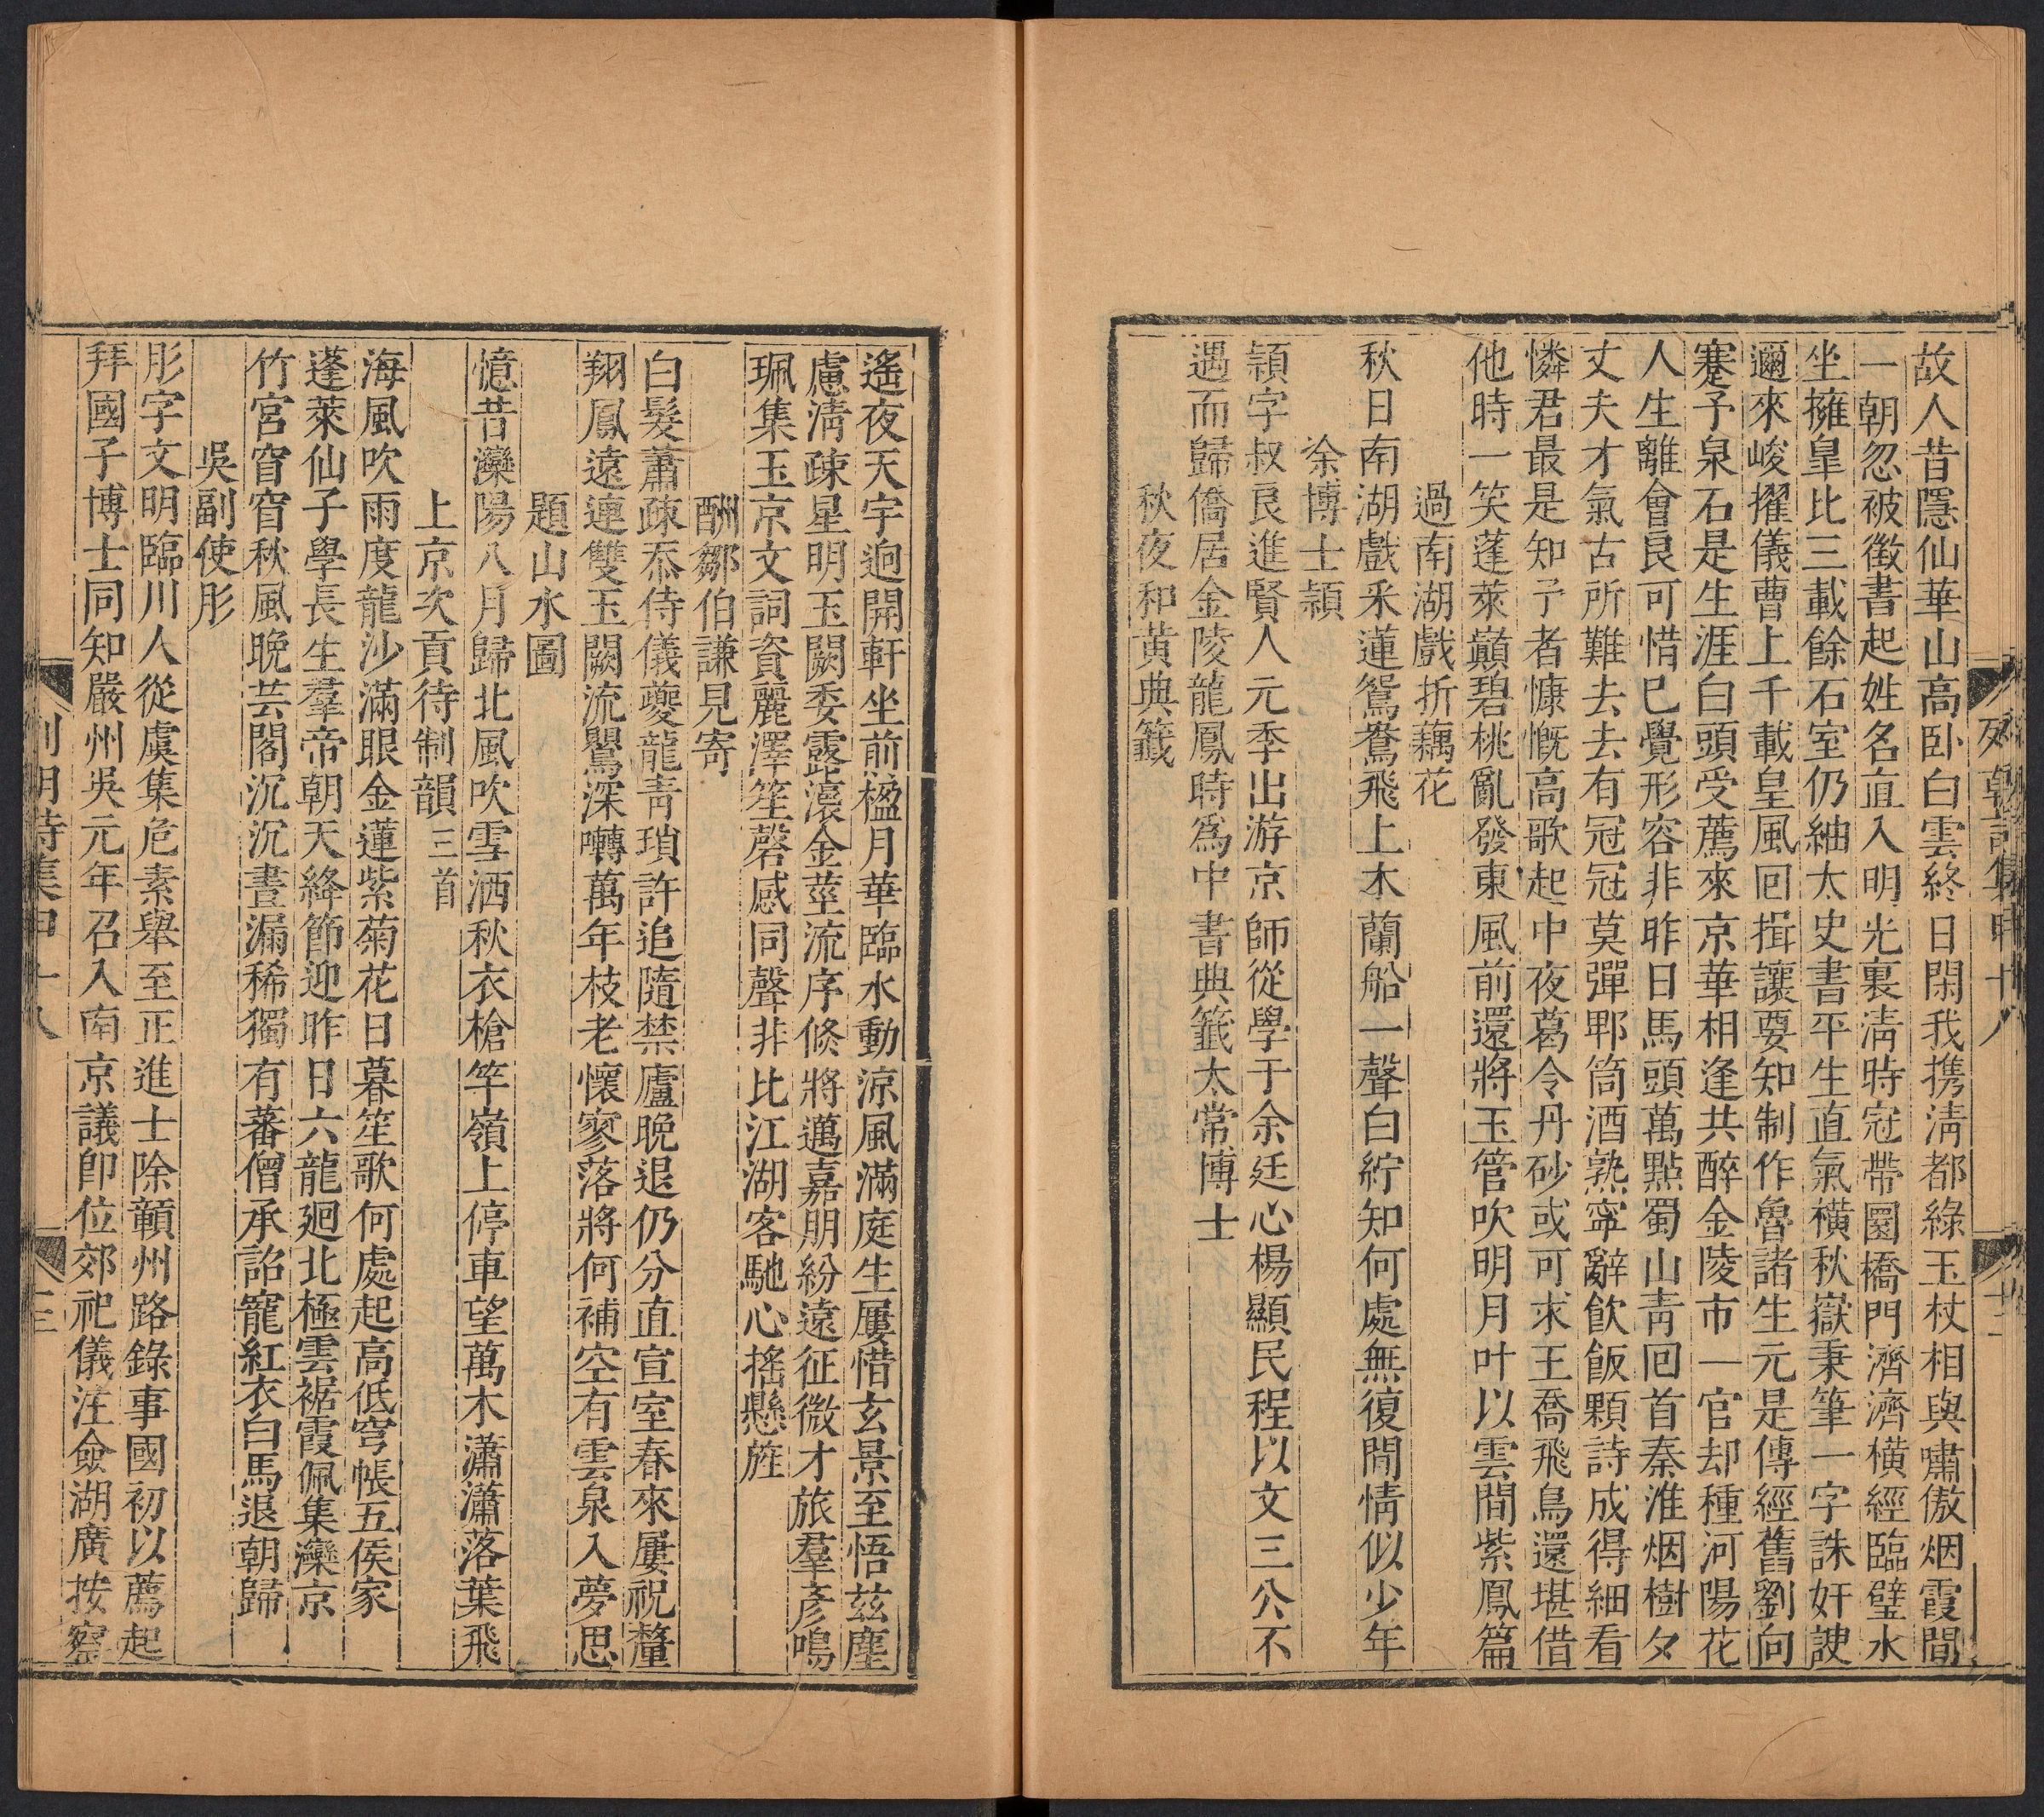 故人昔隱仙華山高臥白雲終日閑我攜淸都綠玉杖相與嘯傲烟霞間
一朝忽被徵書起姓名直入明光裏淸時冠帶圜橋門濟濟橫經臨璧水
坐擁皐比三載餘石室仍紬太史書平生直氣橫秋嶽秉筆一字誅奸諛
邇來峻擢儀曹上千載皇風囘揖讓要知制作魯諸生元是傳經舊劉向
蹇予泉石是生涯白頭受薦來京華相逢共醉金陵市一官却種河陽花
人生離會良可惜已覺形容非昨日馬頭萬點蜀山靑囘首秦淮烟樹夕
丈夫才氣古所難去去有冠冠莫彈郫筒酒熟寧辭飮飯顆詩成得細看
憐君最是知予者慷慨高歌起中夜葛令丹砂或可求王喬飛鳥還堪借
他時一笑蓬萊巓碧桃亂發東風前還將玉管吹明月叶以雲間紫鳳篇
過南湖戲折藕花
秋日南湖戲釆蓮鴛鴦飛上木蘭船一聲白紵知何處無復閒情似少年
涂博士穎
穎字叔良進賢人元季出游京師從學于余廷心楊顯民程以文三公不
遇而歸僑居金陵龍鳳時爲中書典籤太常博士
秋夜和黃典籤
遙夜天宇逈開軒坐前楹月華臨水動涼風滿庭生屢惜玄景至悟兹塵
慮淸疎星明玉闕委露滾金莖流序倏將邁嘉朋紛遠征微才旅羣彥鳴
珮集玉京文詞資麗澤笙磬感同聲非比江湖客馳心搖懸旌
酬鄒伯謙見寄
白髮蕭疎忝侍儀夔龍靑瑣許追隨禁廬晚退仍分直宣室春來屢祝釐
翔鳳遠連雙玉闕流鶯深囀萬年枝老懷寥落將何補空有雲泉入夢思
題山水圖
憶昔灤陽八月歸北風吹雪洒秋衣槍竿嶺上停車望萬木瀟瀟落葉飛
上京次貢待制韻三首
海風吹雨度龍沙滿眼金蓮紫菊花日暮笙歌何處起高低穹帳五侯家
蓬萊仙子學長生羣帝朝天絳節迎昨日六龍廻北極雲裾霞佩集灤京
竹宮窅窅秋風晚芸閣沉沉晝漏稀獨有蕃僧承詔寵紅衣白馬退朝歸
吳副使彤
彤字文明臨川人從虞集危素舉至正進士除贑州路錄事國初以薦起
拜國子博士同知嚴州吳元年召入南京議卽位郊祀儀注僉湖廣按察